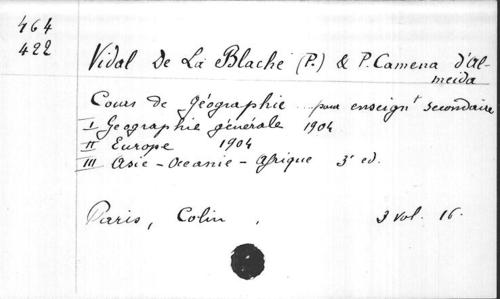 464
422
Vidal De La Blache (P.) & P. Camena d'Al-
meida
Cours de géographie ... pour enseignt secondaire
I Geographie générale 1904
II Europe 1904
III Asie - Oceanie - Afrique 3e ed.
Paris, Colin , 3 vol. 16.